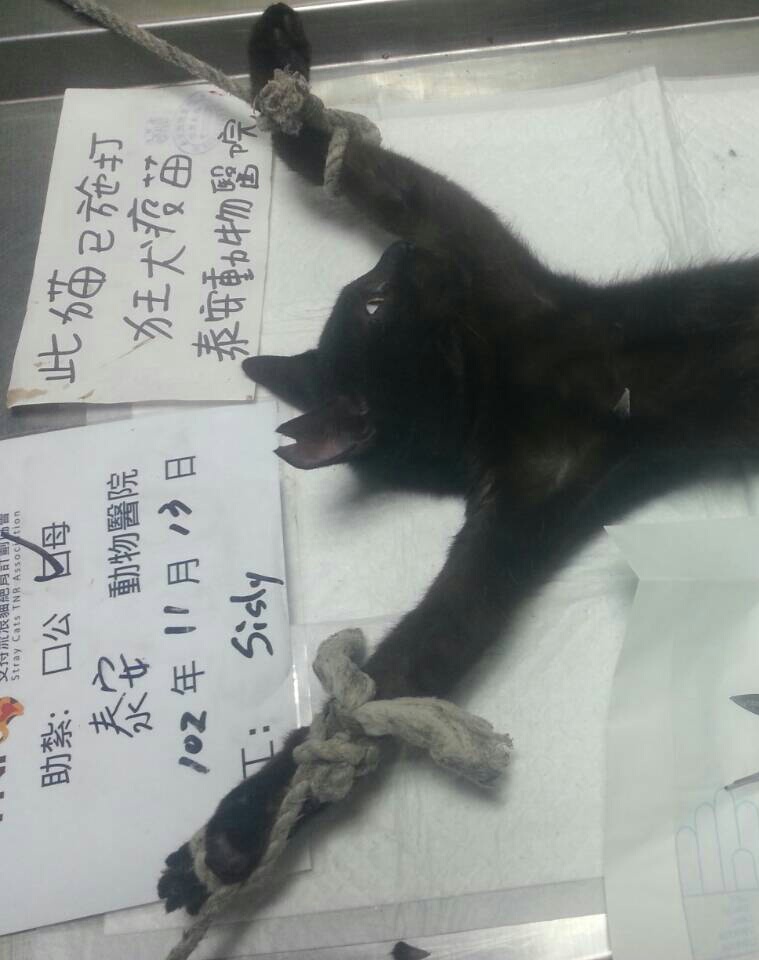 此猫已施打
狂犬疫苗
泰安動物醫院
Stray Cats TNR Association
助紮: 口公 口母
泰安 動物醫院
102年11月13日
工: Sidy